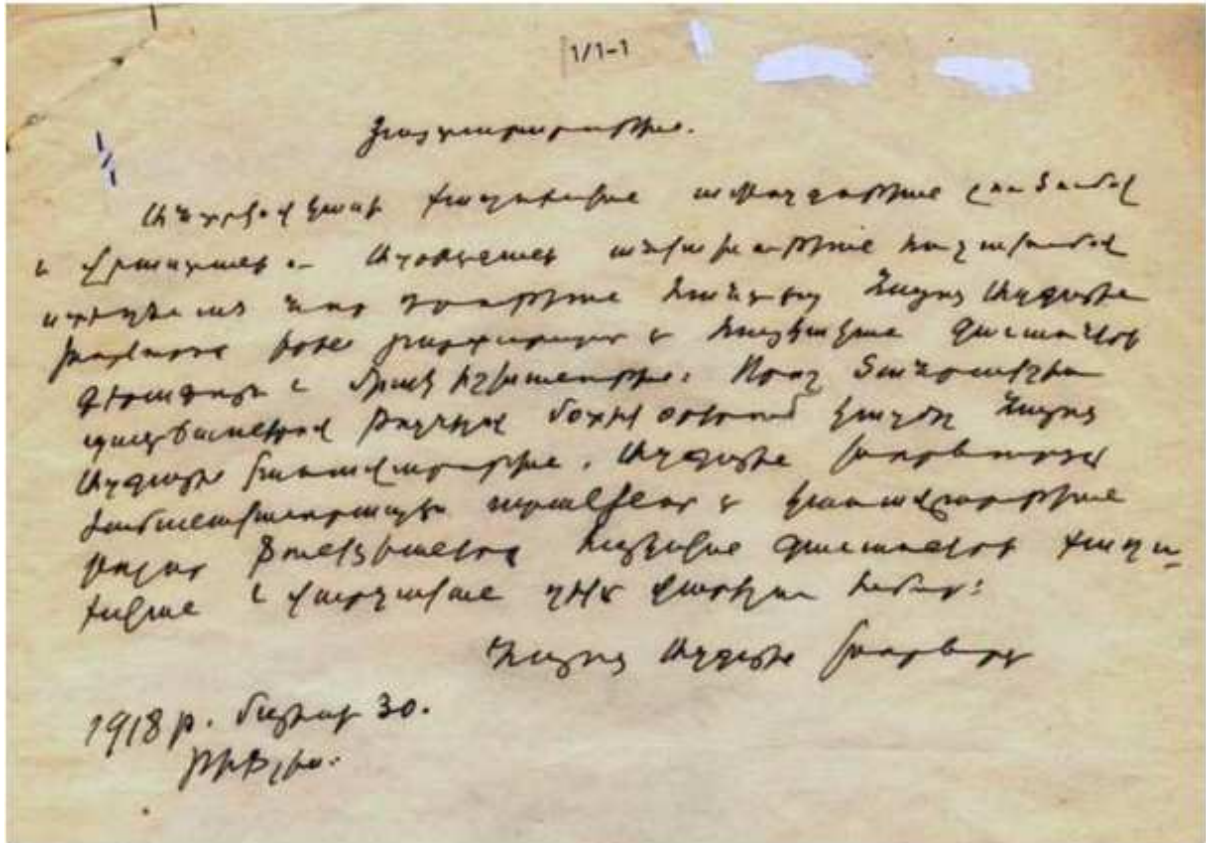 1/1-1
Յայտարարութիւն.
Անդրկովկասի քաղաքական ամբողջութեան լուծումով
և Վրաստանի ու Ադրբեջանի անկախութեան հռչակումով
ստեղծուած նոր դրութեան հանդէպ Հայոց Ազգային
խորհուրդը իրեն յայտարարում է հայկական գաւառների
գերագոյն և միակ իշխանութիւն: Որոշ ծանրակշիռ
պատճառներով թողնելով մօտիկ օրերում կազմել Հայոց
Ազգային կառավարութիւն, Ազգային խորհուրդը
ժամանակաւորապէս ստանձնում է կառավարութեան
բոլոր ֆունկցիաները հայկական գաւառների քաղա-
քական և վարչական ղեկը վարելու համար:
Հայոց Ազգային խորհուրդ
1918 թ. մայիսի 30.
Թիֆլիս.